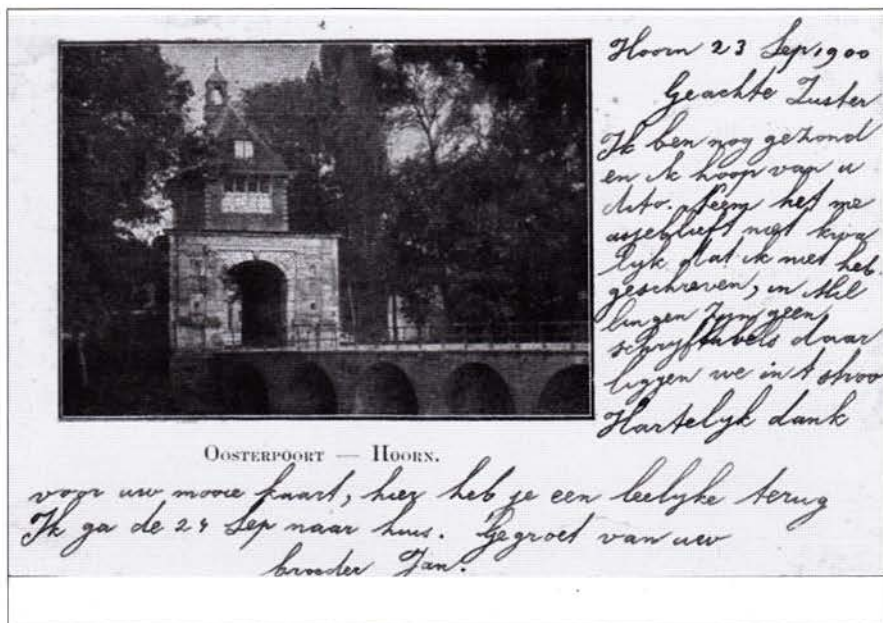 Hoorn 23 Sep 1900
Geachte Zuster
Ik ben nog gezond
en ik hoop van u
dito. Neem het me
asjeblieft niet kwa
lijk dat ik niet heb
geschreven, in Mil
lingen zijn geen
schrijftafels daar
liggen we in t stroo
Hartelijk dank
OOSTERPOORT — HOORN.
voor uw mooie kaart, hier heb je een leelijke terug
Ik ga de 24 Sep naar huis. Gegroet van uw
broeder Jan.